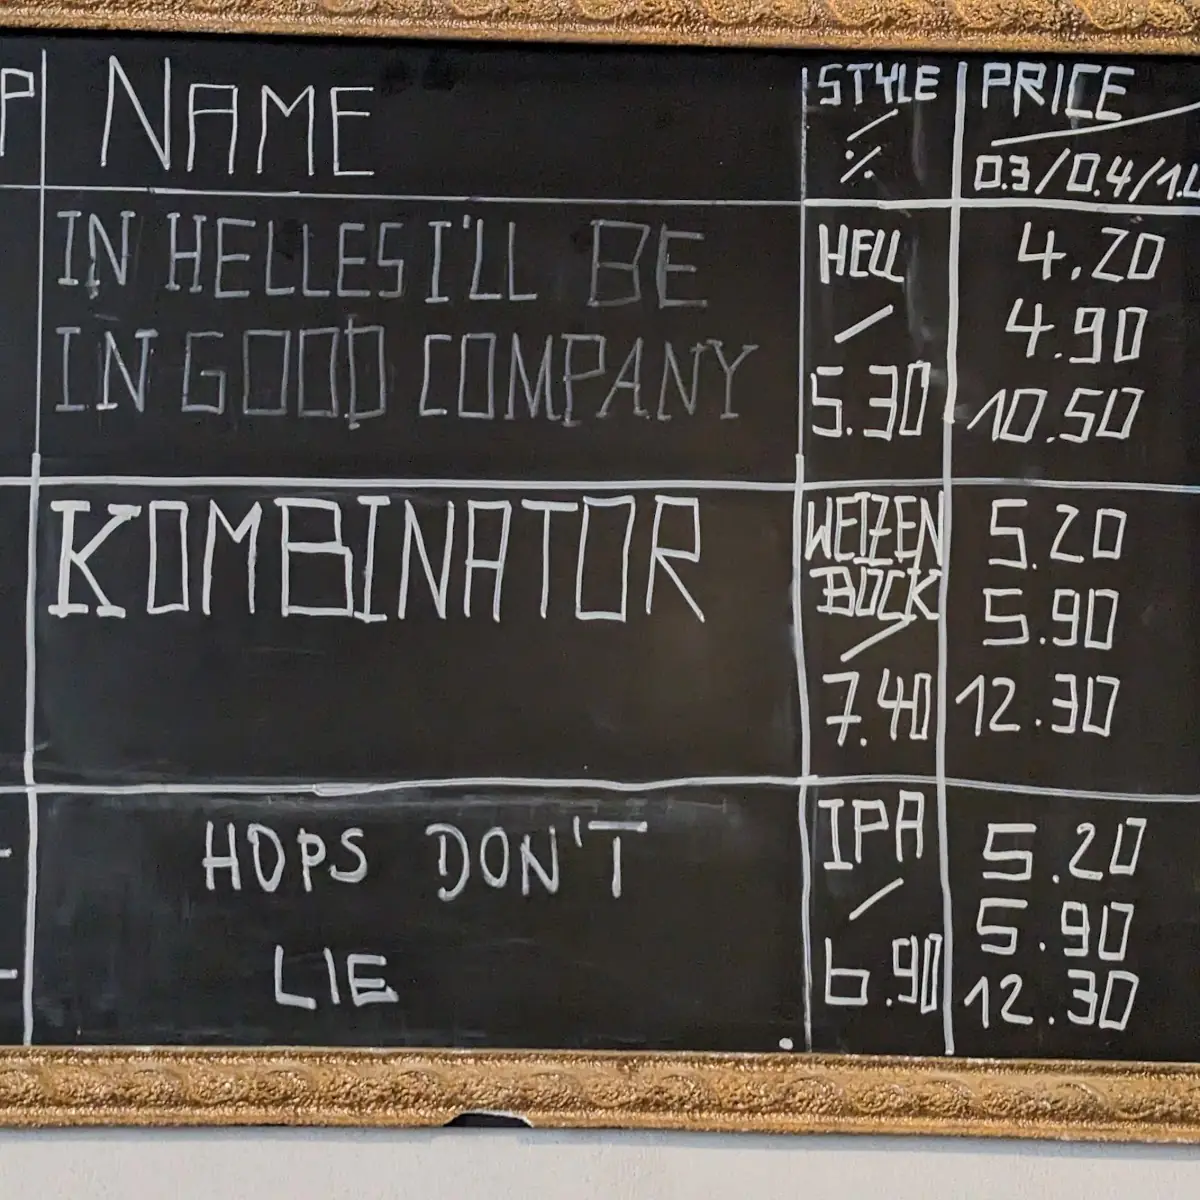 P NAME STYLE PRICE
% 0.3/0.4/1.0
IN HELLES I'LL BE HELL 4.20
/ 4.90
IN GOOD COMPANY 5.30 10.50
KOMBINATOR WEIZEN 5.20
BOCK 5.90
/
7.40 12.30
HOPS DON'T IPA 5.20
/ 5.90
LIE 6.90 12.30